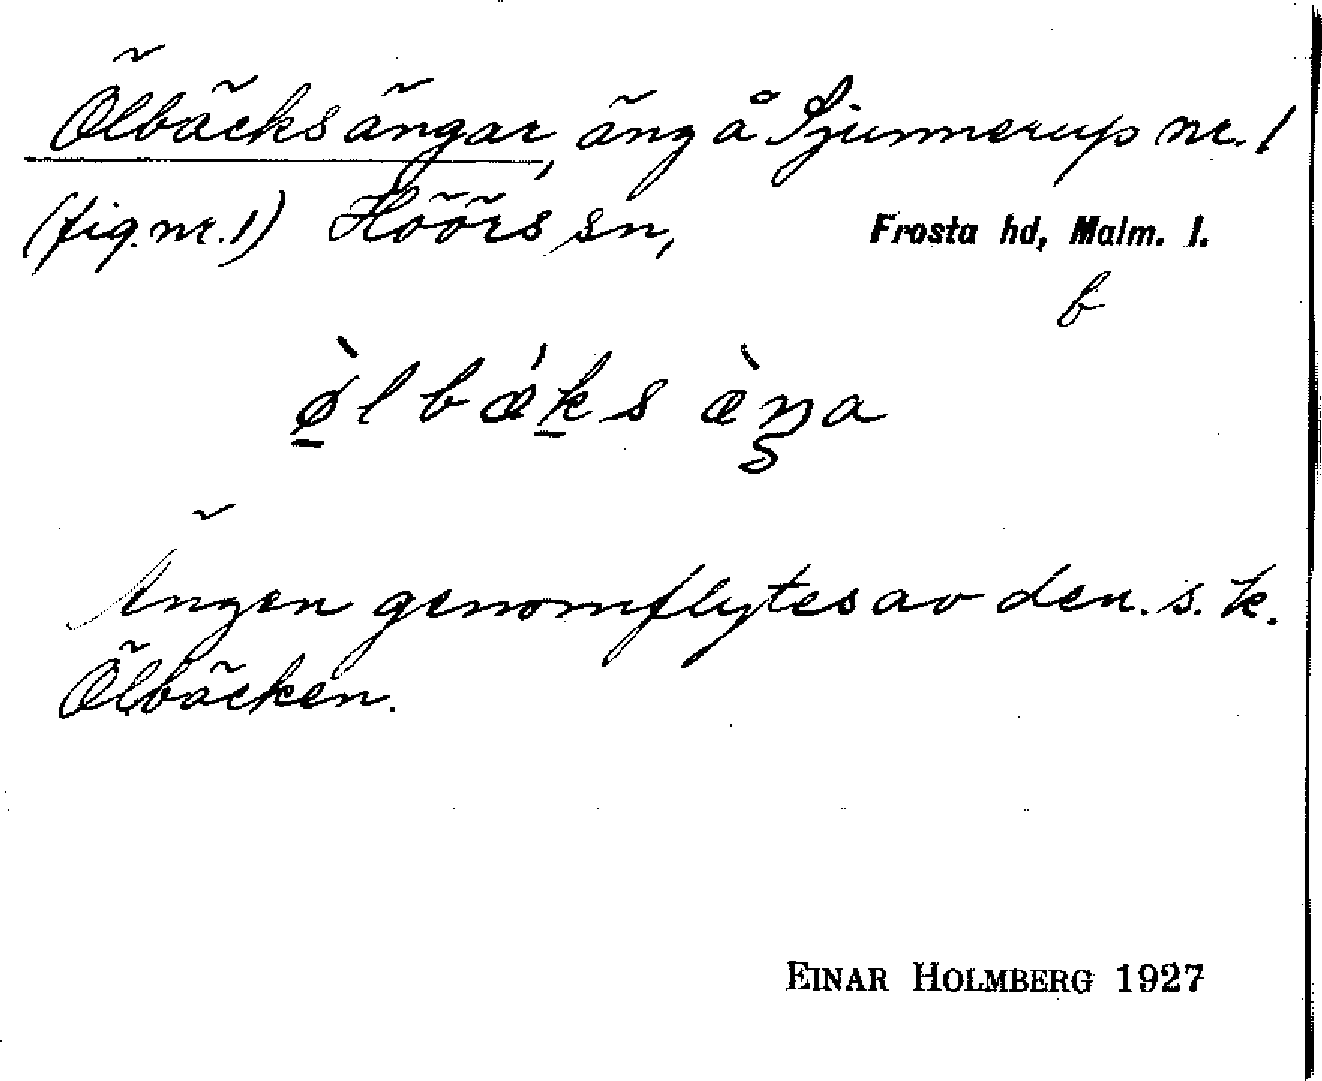 Ölbäcksängar, äng å Sjunnerup nr. 1
(fig. nr. 1) Höörs sn, Frosta hd, Malm. l.
b
ø̱̀lbǽḵs æ̀ŋa
Ängen genomflytes av den s. k.
Ölbäcken.
EINAR HOLMBERG 1927